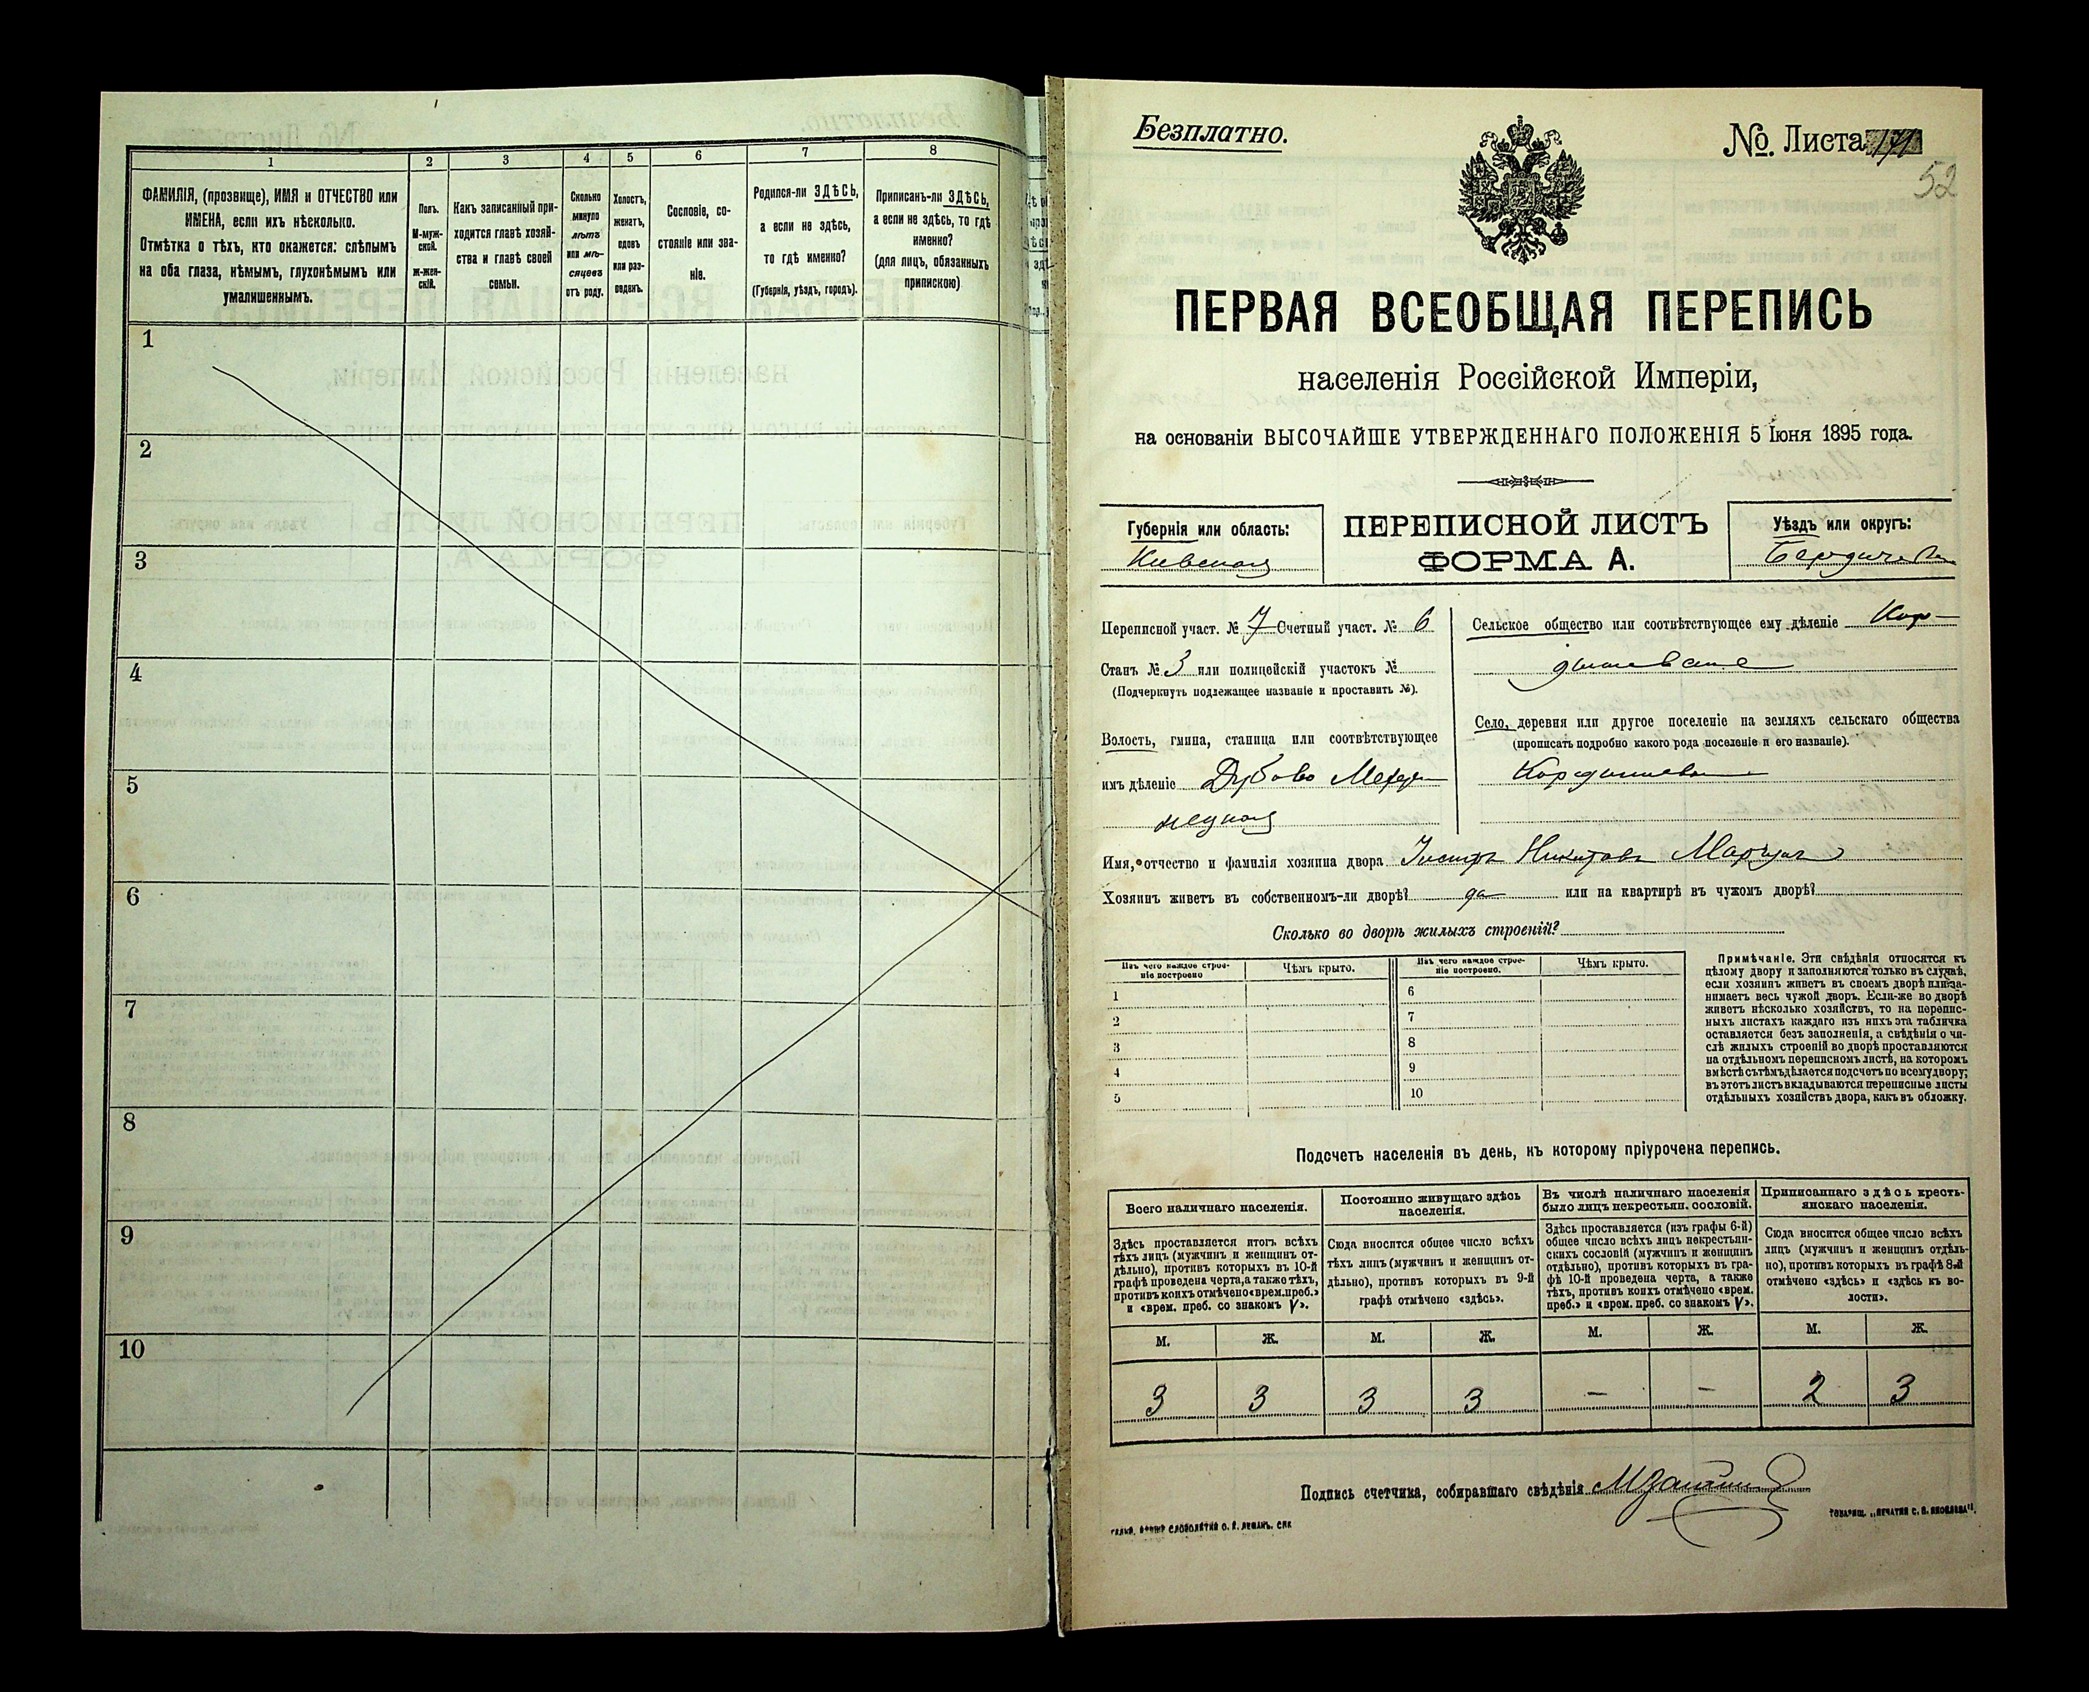 1 2 3 4 5 6 7 8
ФАМИЛІЯ, (прозвище), ИМЯ и ОТЧЕСТВО или
ИМЕНА, если ихъ нѣсколько.
Отмѣтка о тѣхъ, кто окажется: слѣпымъ
на оба глаза, нѣмымъ, глухонѣмымъ или
умалишеннымъ.
Полъ.
М-муж-
ской.
Ж-жен-
скій.
Какъ записанный при-
ходится главѣ хозяй-
ства и главѣ своей
семьи.
Сколько
минуло
лѣтъ
или мѣ-
сяцевъ
отъ роду.
Холостъ,
женатъ,
вдовъ
или раз-
веденъ.
Сословіе, со-
стояніе или зва-
ніе.
Родился-ли ЗДѢСЬ,
а если не здѣсь,
то гдѣ именно?
(Губернія, уѣздъ, городъ).
Приписанъ-ли ЗДѢСЬ,
а если не здѣсь, то гдѣ
именно?
(для лицъ, обязанныхъ
припискою)
1
2
3
4
5
6
7
8
9
10
Безплатно.
№. Листа 171
52
ПЕРВАЯ ВСЕОБЩАЯ ПЕРЕПИСЬ
населенія Россійской Имперіи,
на основаніи ВЫСОЧАЙШЕ УТВЕРЖДЕННАГО ПОЛОЖЕНІЯ 5 Іюня 1895 года.
Губернія или область:
Киевская
ПЕРЕПИСНОЙ ЛИСТЪ
ФОРМА А.
Уѣздъ или округъ:
Переписной участ. № 7 Счетный участ. № 6
Станъ № 3 или полицейскій участокъ №
(Подчеркнуть подлежащее названіе и проставить №).
Волость, гмина, станица или соотвѣтствующее
имъ дѣленіе Дубово Меже-
Сельское общество или соотвѣтствующее ему дѣленіе Кор-
дышевское
Село, деревня или другое поселеніе на земляхъ сельскаго общества
(прописать подробно какого рода поселеніе и его названіе).
Кордышевка
Имя, отчество и фамилія хозяина двора Никитовъ
Хозяинъ живетъ въ собственномъ-ли дворѣ? да или на квартирѣ въ чужомъ дворѣ?
Сколько во дворѣ жилыхъ строеній?
Изъ чего каждое строе-
ніе построено
Чѣмъ крыто.
Изъ чего каждое строе-
ніе построено.
Чѣмъ крыто.
1 6
2 7
3 8
4 9
5 10
Примѣчаніе. Эти свѣдѣнія относятся къ
цѣлому двору и заполняются только въ случаѣ,
если хозяинъ живетъ въ своемъ дворѣ или за-
нимаетъ весь чужой дворъ. Если-же во дворѣ
живетъ нѣсколько хозяйствъ, то на перепис-
ныхъ листахъ каждаго изъ нихъ эта табличка
оставляется безъ заполненія, а свѣдѣнія о чи-
слѣ жилыхъ строеній во дворѣ проставляются
на отдѣльномъ переписномъ листѣ, на которомъ
вмѣстѣ съ тѣмъ дѣлается подсчетъ по всему двору;
въ этотъ листъ вкладываются переписные листы
отдѣльныхъ хозяйствъ двора, какъ въ обложку.
Подсчетъ населенія въ день, къ которому пріурочена перепись.
Всего наличнаго населенія.
Здѣсь проставляется итогъ всѣхъ
тѣхъ лицъ (мужчинъ и женщинъ от-
дѣльно), противъ которыхъ въ 10-й
графѣ проведена черта, а также тѣхъ,
противъ коихъ отмѣчено «врем. преб.»
и «врем. преб. со знакомъ V».
Постоянно живущаго здѣсь
населенія.
Сюда вносится общее число всѣхъ
тѣхъ лицъ (мужчинъ и женщинъ от-
дѣльно), противъ которыхъ въ 9-й
графѣ отмѣчено «здѣсь».
Въ числѣ наличнаго населенія
было лицъ некрестьян. сословій.
Здѣсь проставляется (изъ графы 6-й)
общее число всѣхъ лицъ некрестьян-
скихъ сословій (мужчинъ и женщинъ
отдѣльно), противъ которыхъ въ гра-
фѣ 10-й проведена черта, а также
тѣхъ, противъ коихъ отмѣчено «врем.
преб.» и «врем. преб. со знакомъ V».
Приписаннаго здѣсь кресть-
янскаго населенія.
Сюда вносится общее число всѣхъ
лицъ (мужчинъ и женщинъ отдѣль-
но), противъ которыхъ въ графѣ 8-й
отмѣчено «здѣсь» и «здѣсь къ во-
лости».
М. Ж. М. Ж. М. Ж. М. Ж.
3 3 3 3 – – 2 3
Подпись счетчика, собиравшаго свѣдѣнія
ТОВАРИЩ. „ПЕЧАТНЯ С. П. ЯКОВЛЕВА".